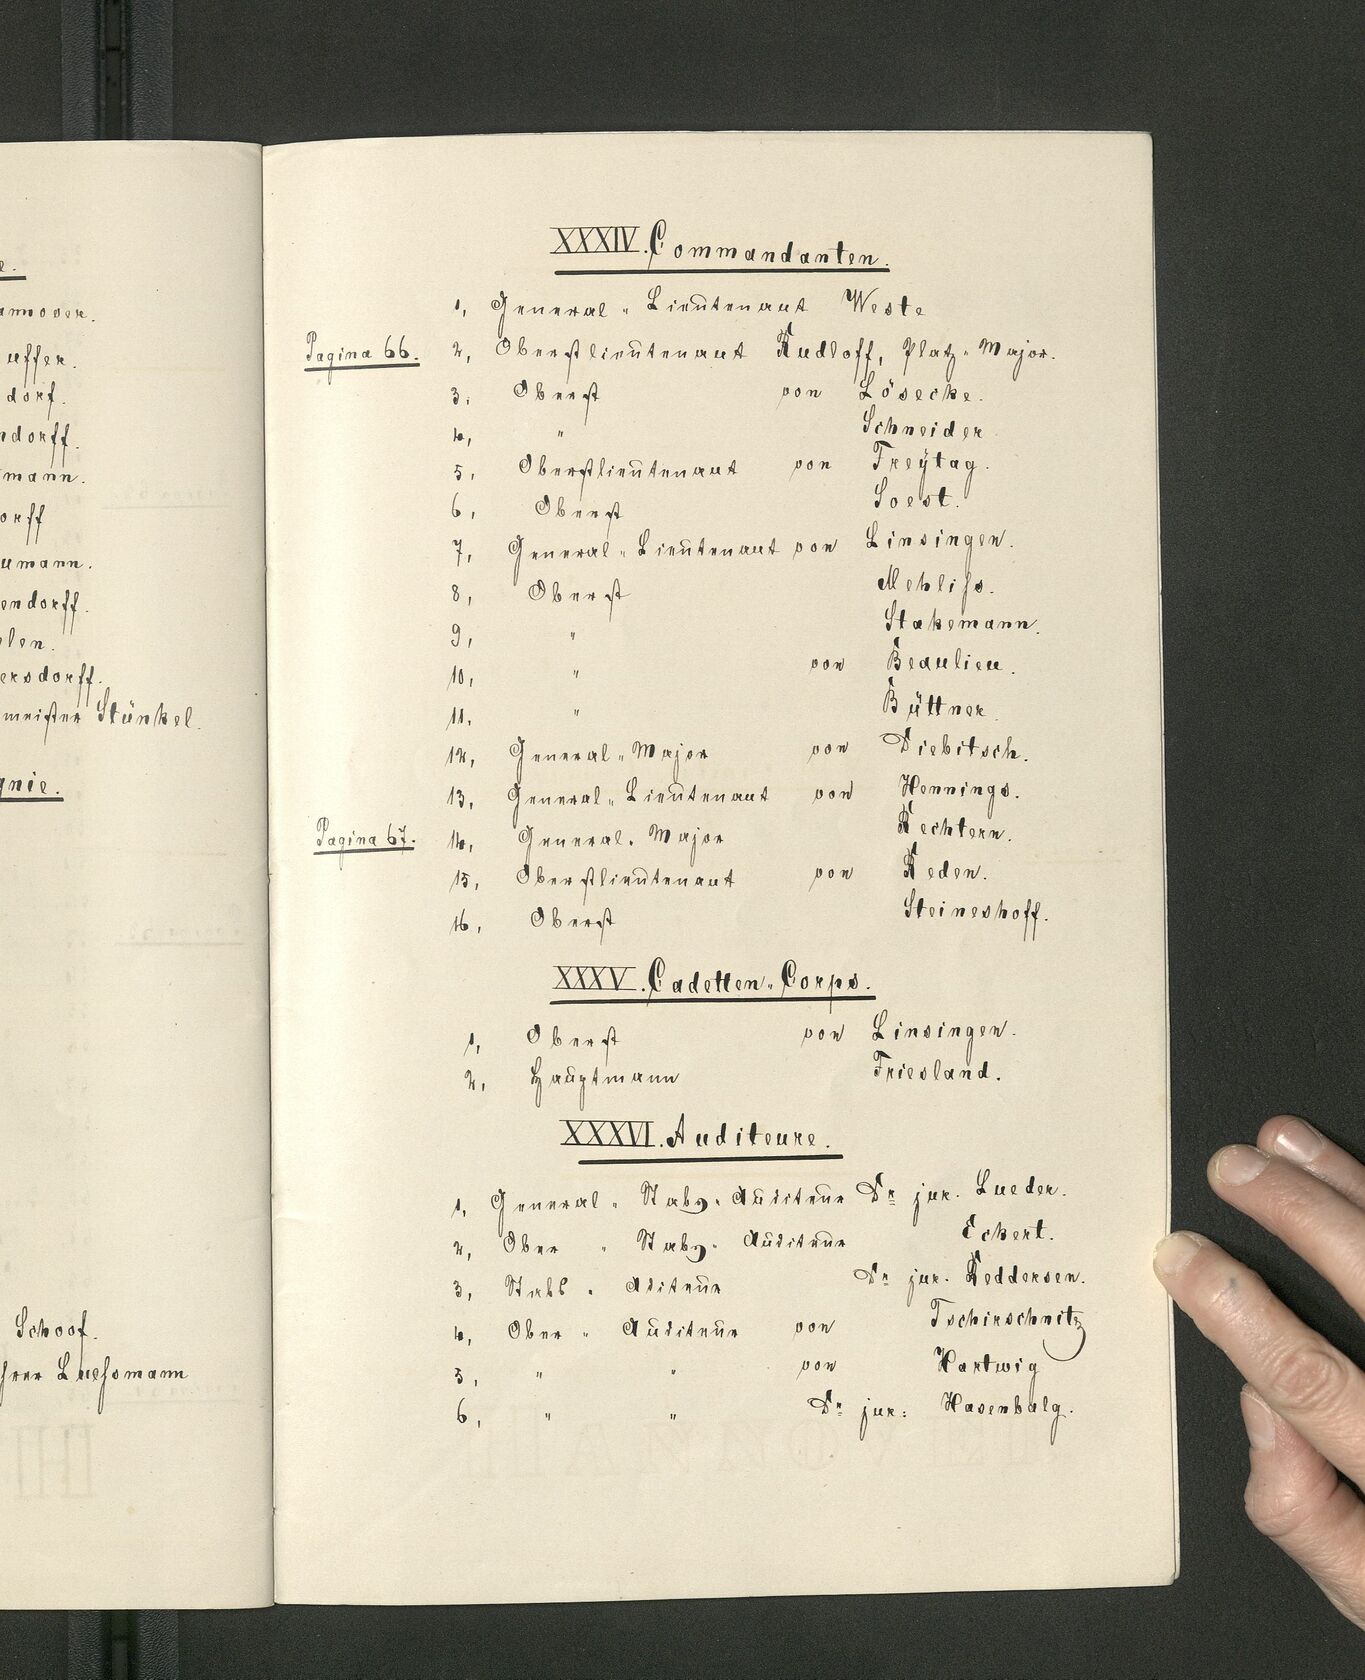 e.
annover.
uffer.
dorf.
ndorff.
mann.
orff
umann.
endorff.
elen.
ersdorff.
meister Stünkel.
gnie.
Schoof.
hrer Luehsmann
XXXIV. Commandanten.
1, General-Lieutenant Weste
Pagina 66. 2, Oberstlieutenant Rudloff, Platz-Major.
3. Oberst von Lösecke.
4, " Schneider.
5, Oberstlieutenant von Freÿtag.
6, Oberst Soest.
7, General-Lieutenant von Linsingen.
8, Oberst Mehliss.
9, " Stakemann.
10, " von Beaulieu.
11. " Büttner.
12, General-Major von Diebitsch.
13, General-Lieutenant von Hennings.
Pagina 67. 14, General. Major Rechtern.
15, Oberstlieutenant von Reden.
16, Oberst Steineshoff.
XXXV. Cadetten-Corps.
1, Oberst von Linsingen.
2, Hauptmann Friesland.
XXXVI. Auditeure.
1, General-Stabs-Auditeur Dr jur. Lueder.
2, Ober-Stabs-Auditeur Eckert.
3, Stabs-Aditeur Dr jur. Reddersen.
4, Ober-Auditeur von Tschirschnitz
5, " " von Hartwig
6, " " Dr jur: Hasenbalg.